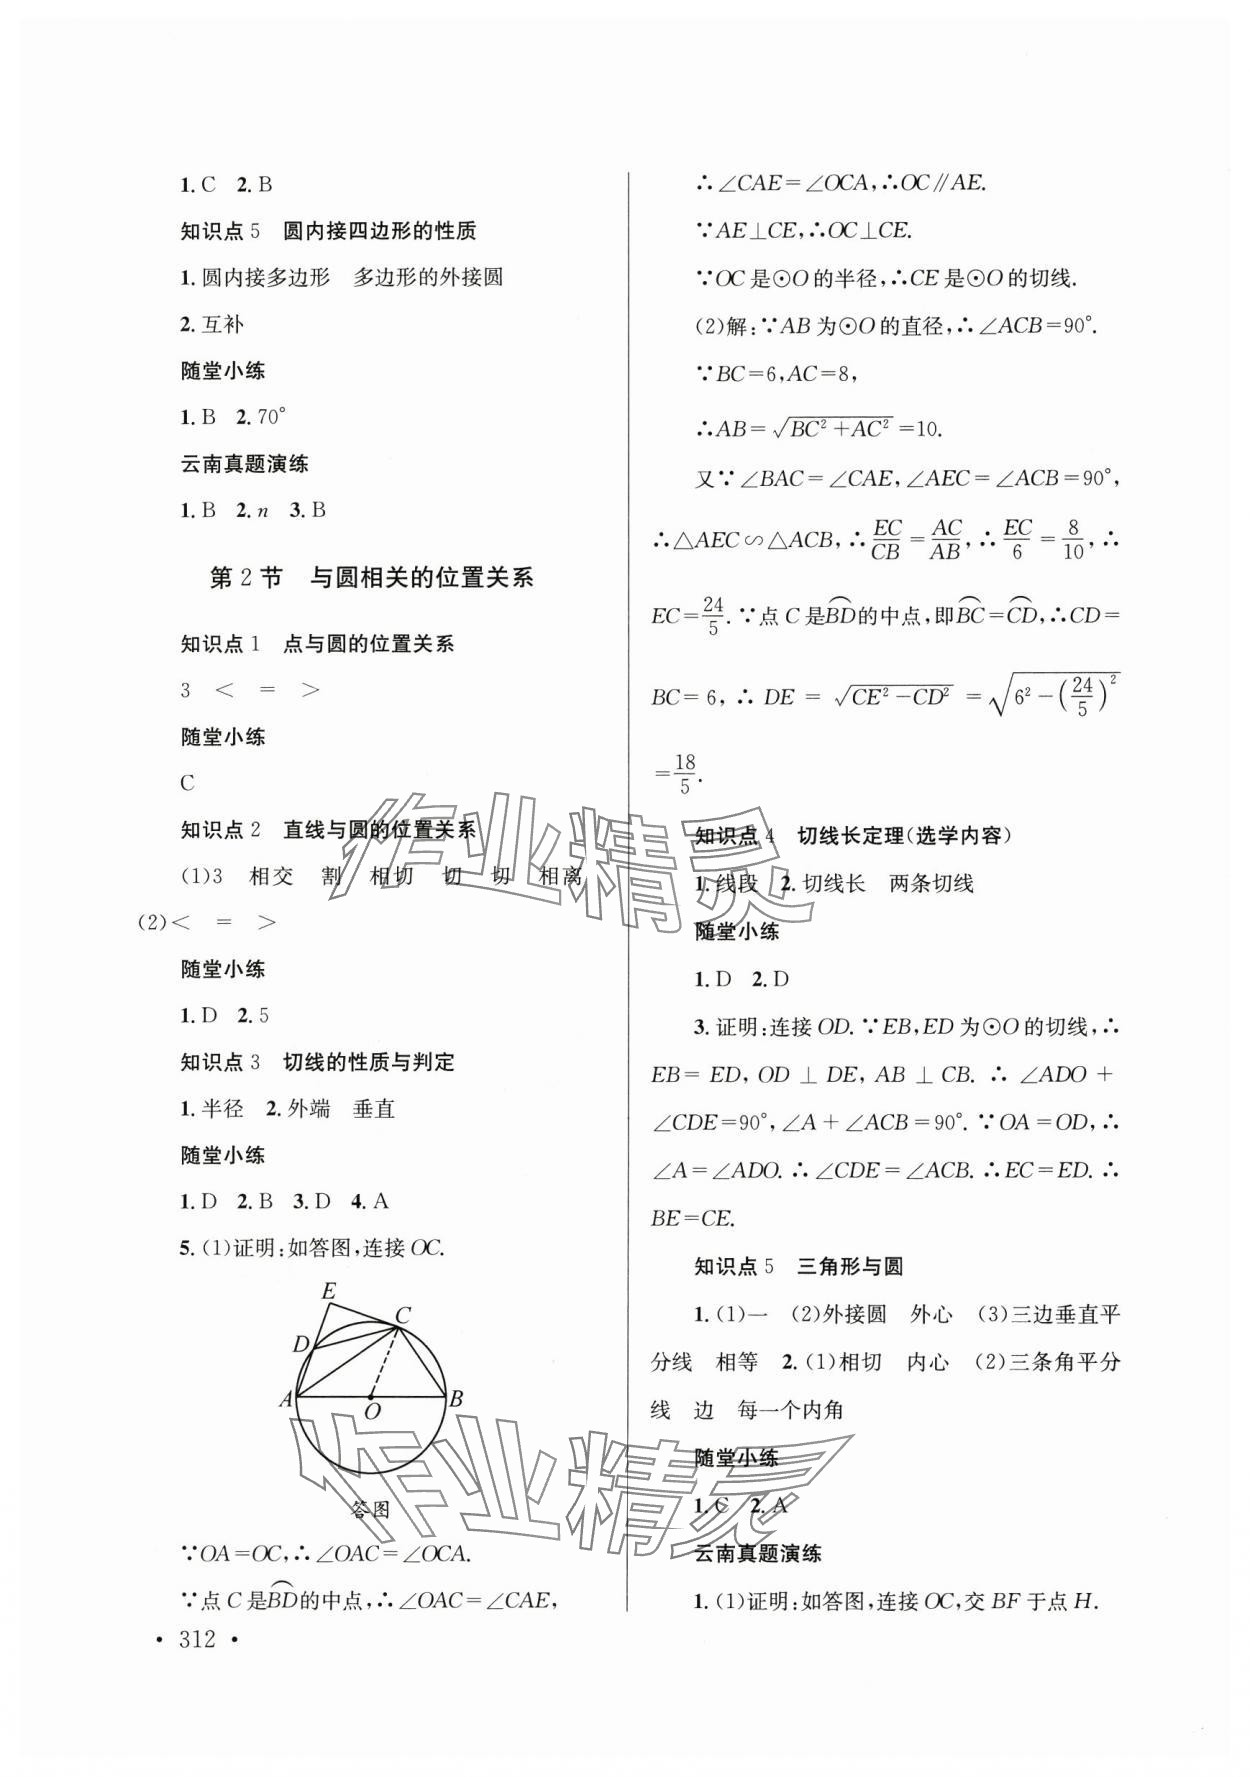 1.C 2.B
知识点5 圆内接四边形的性质
1.圆内接多边形 多边形的外接圆
2.互补
随堂小练
1.B 2.70°
云南真题演练
1.B 2.n 3.B
第2节 与圆相关的位置关系
知识点1 点与圆的位置关系
3 < = >
随堂小练
C
知识点2 直线与圆的位置关系
(1)3 相交 割 相切 切 切 相离
(2)< = >
随堂小练
1.D 2.5
知识点3 切线的性质与判定
1.半径 2.外端 垂直
随堂小练
1.D 2.B 3.D 4.A
5.(1)证明:如答图,连接OC.
E
C
D
A
O
B
答图
∵OA=OC,∴∠OAC=∠OCA.
∵点C是⌒BD的中点,∴∠OAC=∠CAE,
• 312 •
∴∠CAE=∠OCA,∴OC∥AE.
∵AE⊥CE,∴OC⊥CE.
∵OC是⊙O的半径,∴CE是⊙O的切线.
(2)解:∵AB为⊙O的直径,∴∠ACB=90°.
∵BC=6,AC=8,
∴AB=√(BC²+AC²)=10.
又∵∠BAC=∠CAE,∠AEC=∠ACB=90°,
∴△AEC∽△ACB,∴EC/CB=AC/AB,∴EC/6=8/10,∴
EC=24/5.∵点C是⌒BD的中点,即⌒BC=⌒CD,∴CD=
BC=6,∴DE=√(CE²-CD²)=√(6²-(24/5)²)
=18/5.
知识点4 切线长定理(选学内容)
1.线段 2.切线长 两条切线
随堂小练
1.D 2.D
3.证明:连接OD.∵EB,ED为⊙O的切线,∴
EB=ED,OD⊥DE,AB⊥CB.∴∠ADO+
∠CDE=90°,∠A+∠ACB=90°.∵OA=OD,∴
∠A=∠ADO.∴∠CDE=∠ACB.∴EC=ED.∴
BE=CE.
知识点5 三角形与圆
1.(1)一 (2)外接圆 外心 (3)三边垂直平
分线 相等 2.(1)相切 内心 (2)三条角平分
线 边 每一个内角
随堂小练
1.C 2.A
云南真题演练
1.(1)证明:如答图,连接OC,交BF于点H.
作业精灵
作业精灵